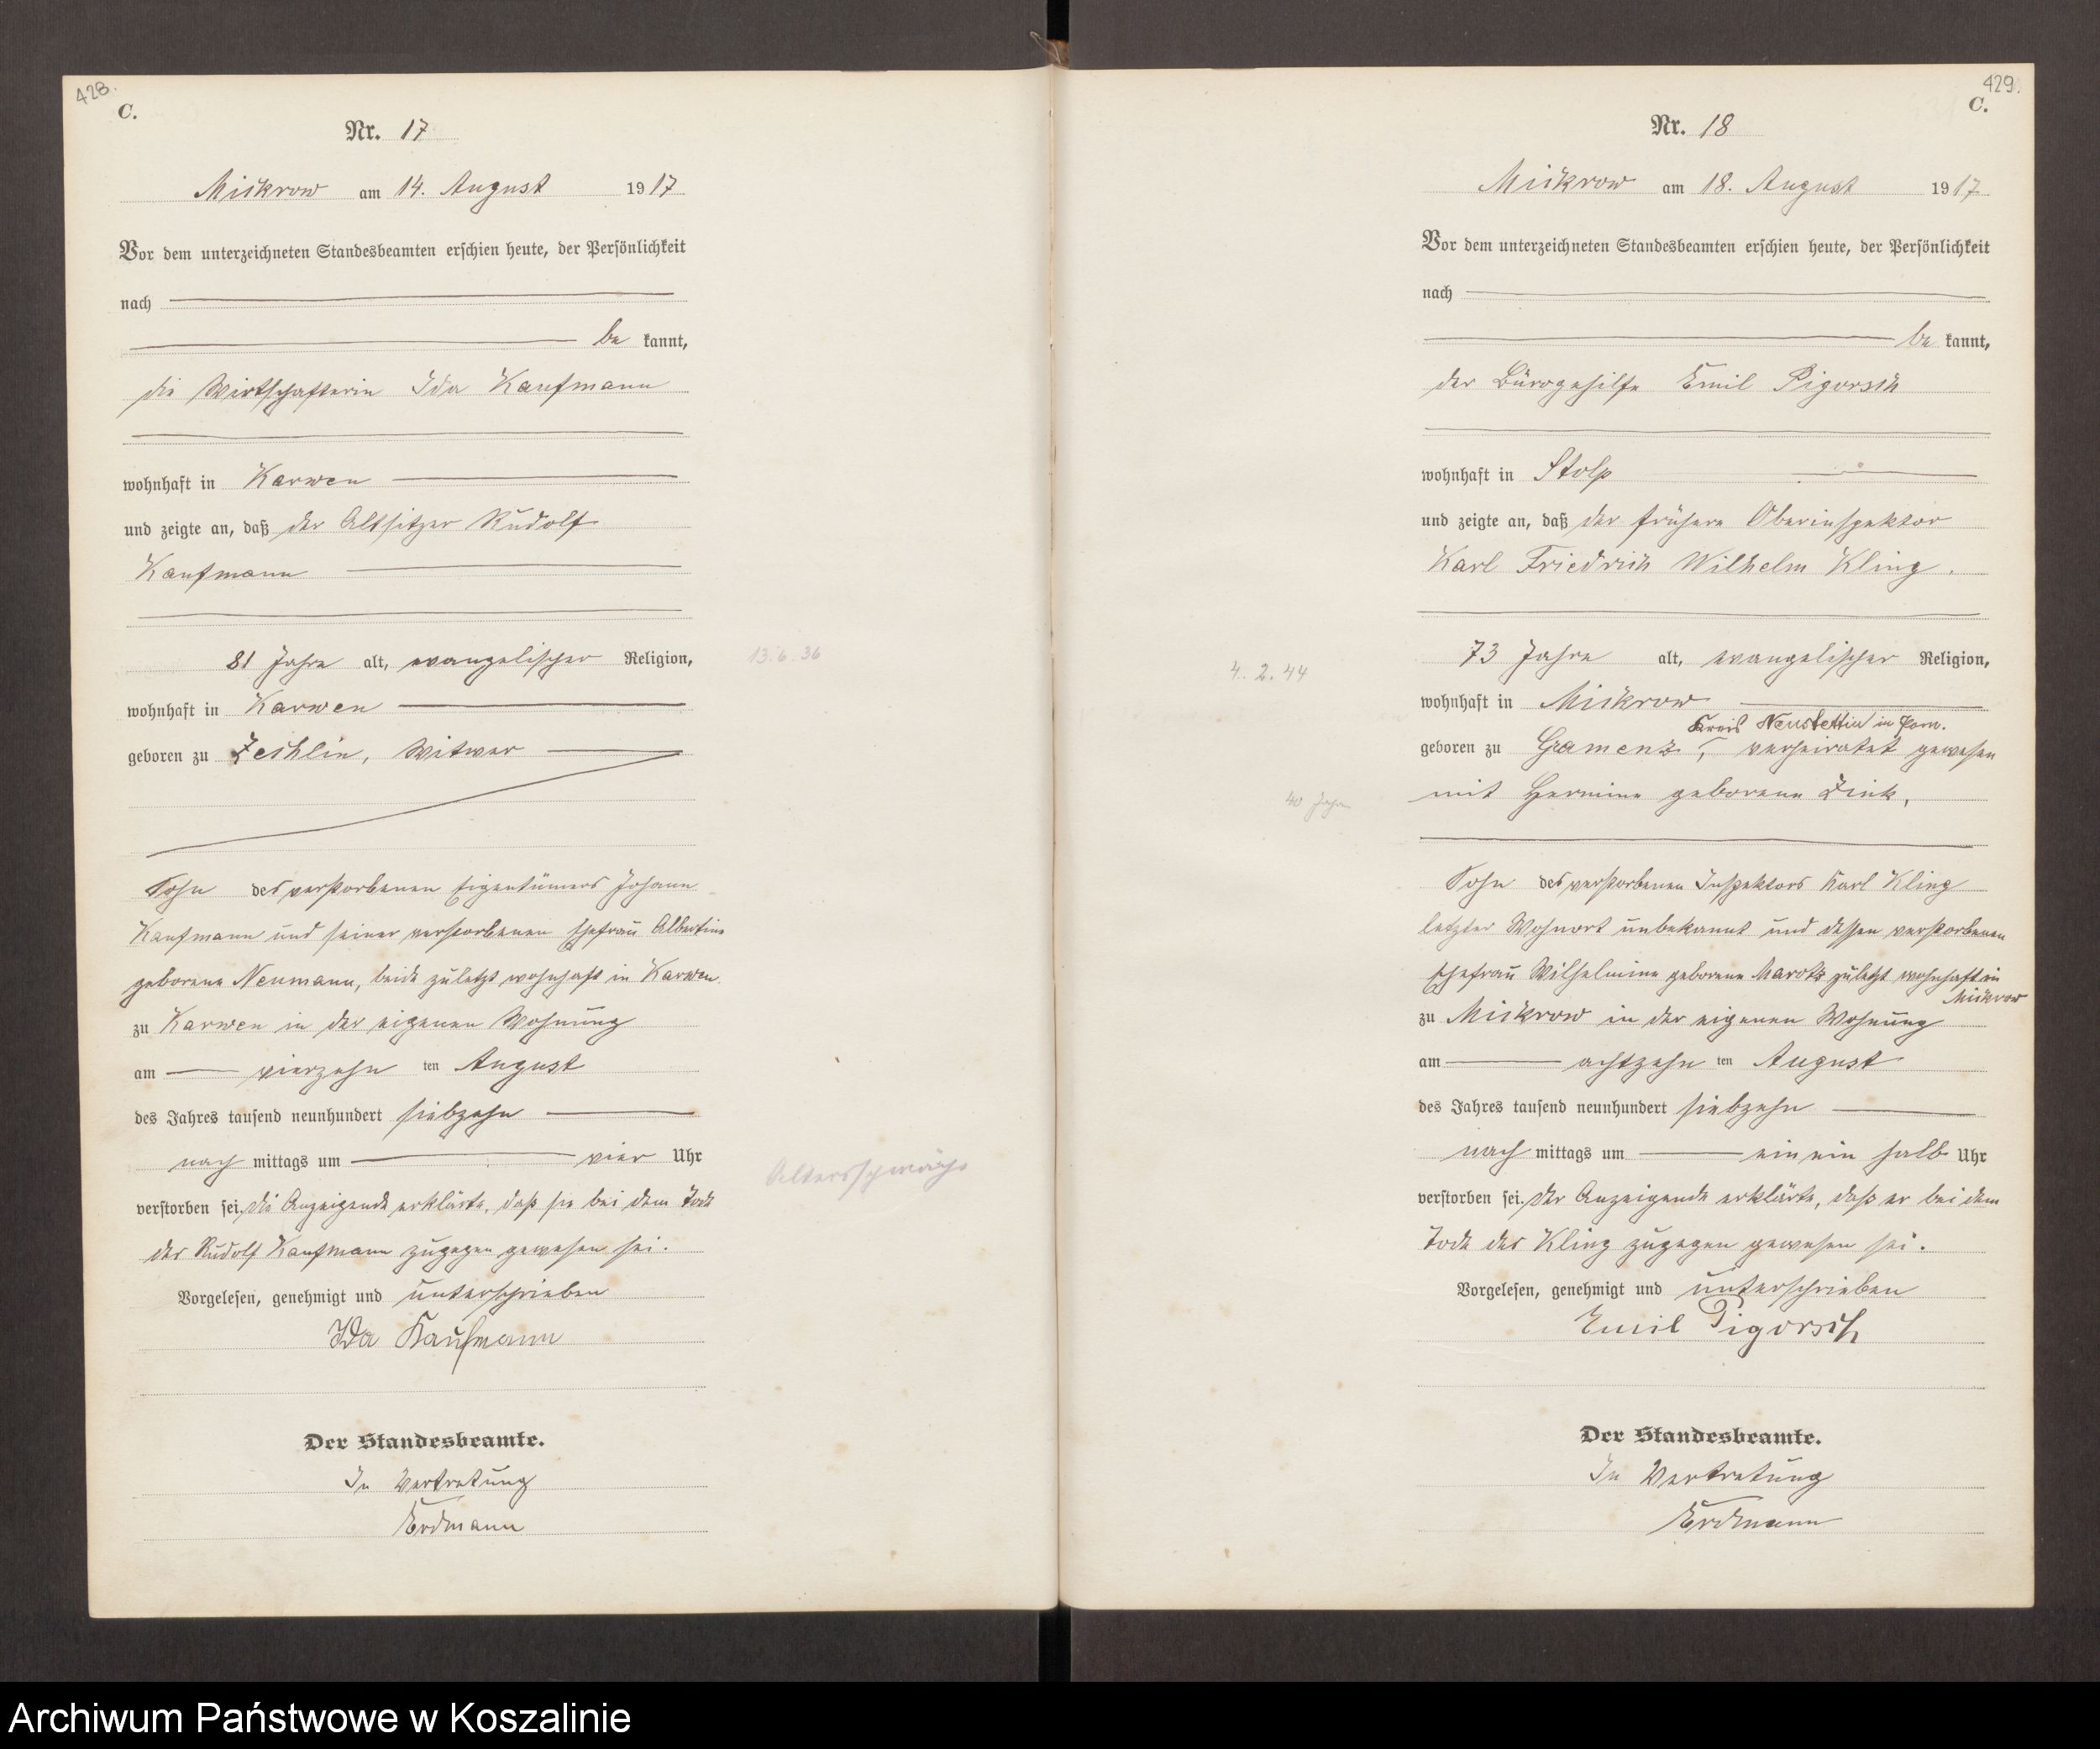 428.
C.
Nr. 17
Mickrow am 14. August 1917
Vor dem unterzeichneten Standesbeamten erschien heute, der Persönlichkeit
nach
be kannt,
die Wirtschafterin Ida Kaufmann
wohnhaft in Karwen
und zeigte an, daß der Altsitzer Rudolf
Kaufmann
81 Jahre alt, evangelischer Religion,
13.6.36
wohnhaft in Karwen
geboren zu Zechlin, Witwer
Sohn des verstorbenen Eigentümers Johann
Kaufmann und seiner verstorbenen Ehefrau Albertine
geborene Neumann, beide zuletzt wohnhaft in Karwen.
zu Karwen in der eigenen Wohnung
am vierzehn ten August
des Jahres tausend neunhundert siebzehn
nach mittags um vier Uhr
Altersschwäche
verstorben sei. Die Anzeigende erklärte, daß sie bei dem Tode
des Rudolf Kaufmann zugegen gewesen sei.
Vorgelesen, genehmigt und unterschrieben
Ida Kaufmann
Der Standesbeamte.
In Vertretung
Erdmann
429.
C.
Nr. 18
Mickrow am 18. August 1917
Vor dem unterzeichneten Standesbeamten erschien heute, der Persönlichkeit
nach
be kannt,
der Bürogehilfe Emil Pigorsch
wohnhaft in Stolp
und zeigte an, daß der frühere Oberinspektor
Karl Friedrich Wilhelm Kling.
73 Jahre alt, evangelischer Religion,
4.2.44
wohnhaft in Mickrow
Kreis Neustettin in Pom.
geboren zu Gramenz, verheiratet gewesen
mit Hermine geborene Zink,
40 Jahre
Sohn des verstorbenen Inspektors Karl Kling
letzter Wohnort unbekannt und dessen verstorbenen
Ehefrau Wilhelmine geborene Marotz zuletzt wohnhaft in
Mickrow
zu Mickrow in der eigenen Wohnung
am achtzehn ten August
des Jahres tausend neunhundert siebzehn
nach mittags um ein ein halb Uhr
verstorben sei. Der Anzeigende erklärte, daß er bei dem
Tode des Kling zugegen gewesen sei.
Vorgelesen, genehmigt und unterschrieben
Emil Pigorsch
Der Standesbeamte.
In Vertretung
Erdmann
Archiwum Państwowe w Koszalinie